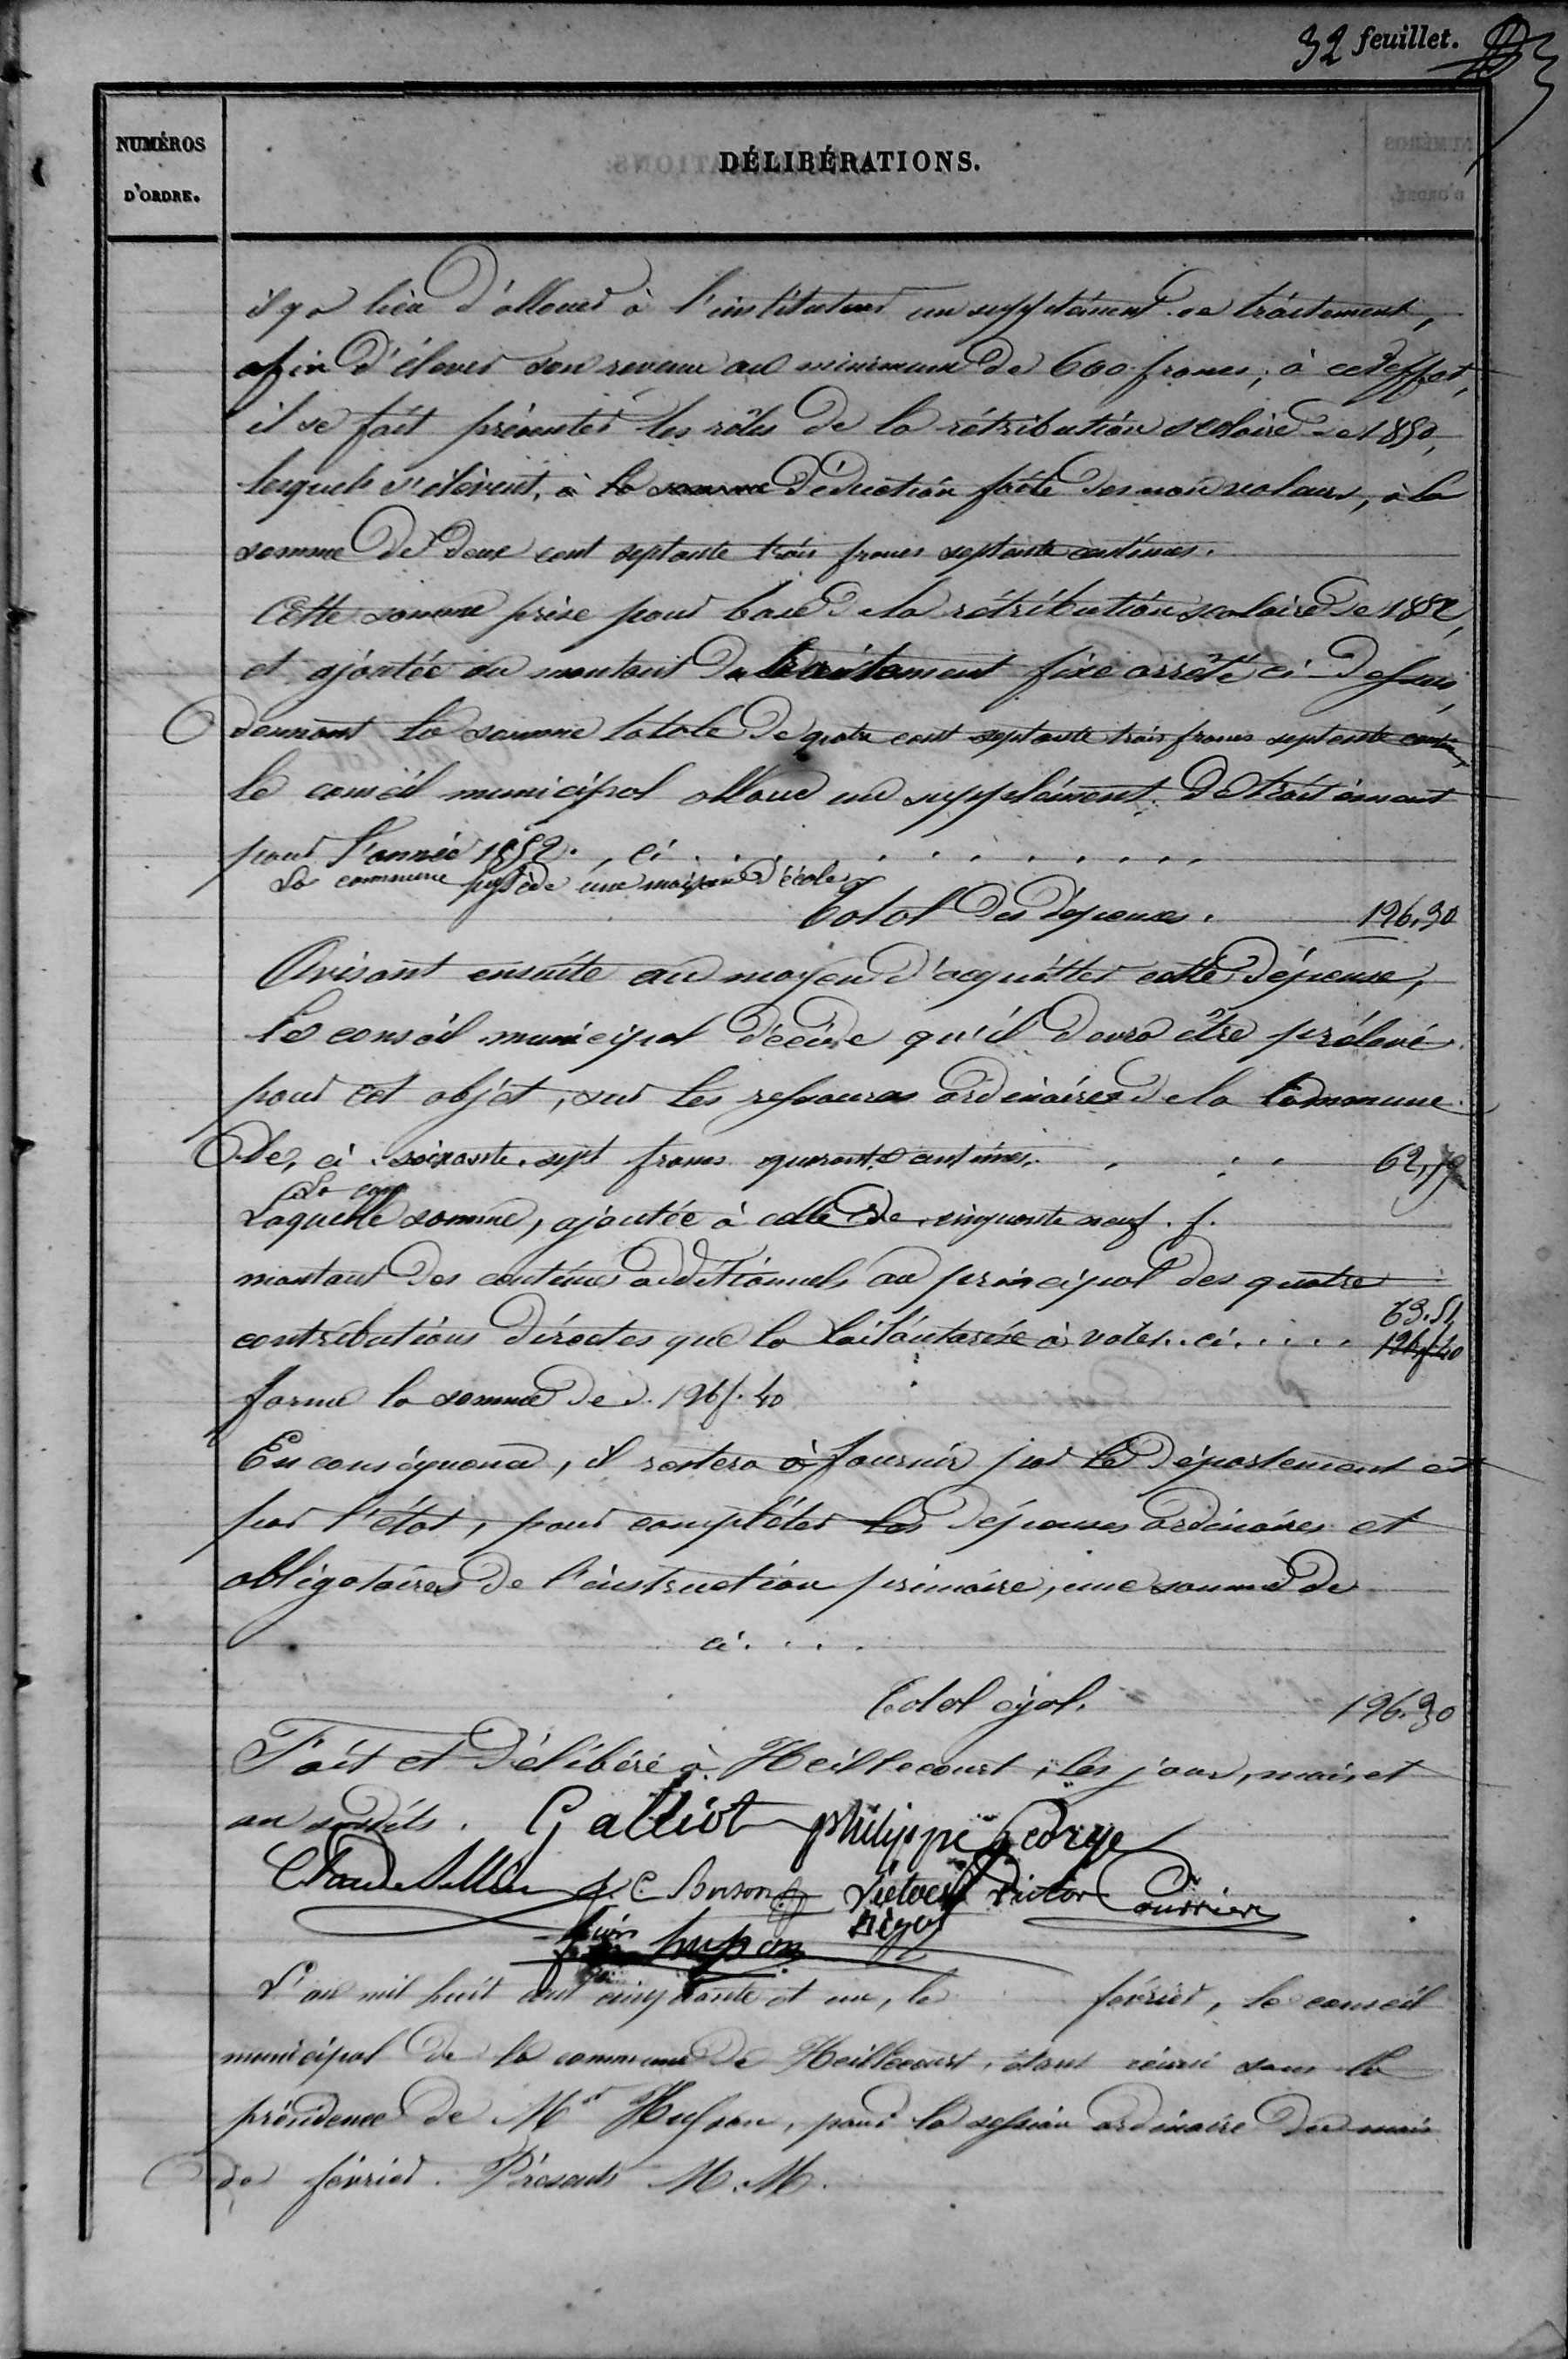 32 feuillet.
NUMÉROS
D'ORDRE.
DÉLIBÉRATIONS.
il y a lieu d'allouer à l'instituteur un supplément de traitement,
afin d'élever son revenu au minimum de 600 francs; à cet effet,
il se fait présenter les rôles de la rétribution scolaire de 1850,
lesquels s'élèvent, à la somme déduction faite des non valeurs, à la
somme de deux cent septante trois francs septante centimes.
Cette somme prise pour base de la rétribution scolaire de 1852,
et ajoutée au montant du traitement fixe arrêté ci-dessus,
donnant la somme totale de quatre cent septante trois francs septante centimes
le conseil municipal alloue un supplément de traitement
pour l'année 1852. , ci . . . . . . . . . .
La commune possède une maison d'école
Total des dépenses. 126,30
Avisant ensuite au moyen d'acquitter cette dépense,
le conseil municipal décide qu'il devra être prélevé
pour cet objet, sur les ressources ordinaires de la commune
de, ci soixante sept francs quarante centimes. 62,79
Laquelle somme, ajoutée à celle de cinquante neuf. f.
montant des centimes additionnels au principal des quatre
contributions directes que la loi l'autorise à voter. ci. . . . . 63.51
126f40
forme la somme de 126f.40
En conséquence, il restera à fournir par le département et
par l'état, pour compléter les dépenses ordinaires et
obligatoires de l'instruction primaire, une somme de
ci. . . .
Total égal. 126.30
Fait et délibéré à Heillecourt, les jour, mois et
an susdits. Galliot philippe george
Claude J. C. Boison Victor Courrier
husson
L'an mil huit cent cinquante et un, le février, le conseil
municipal de la commune de Heillecourt, étant réuni sous la
présidence de Mr Husson, pour la session ordinaire du mois
de février. Présents M.M.